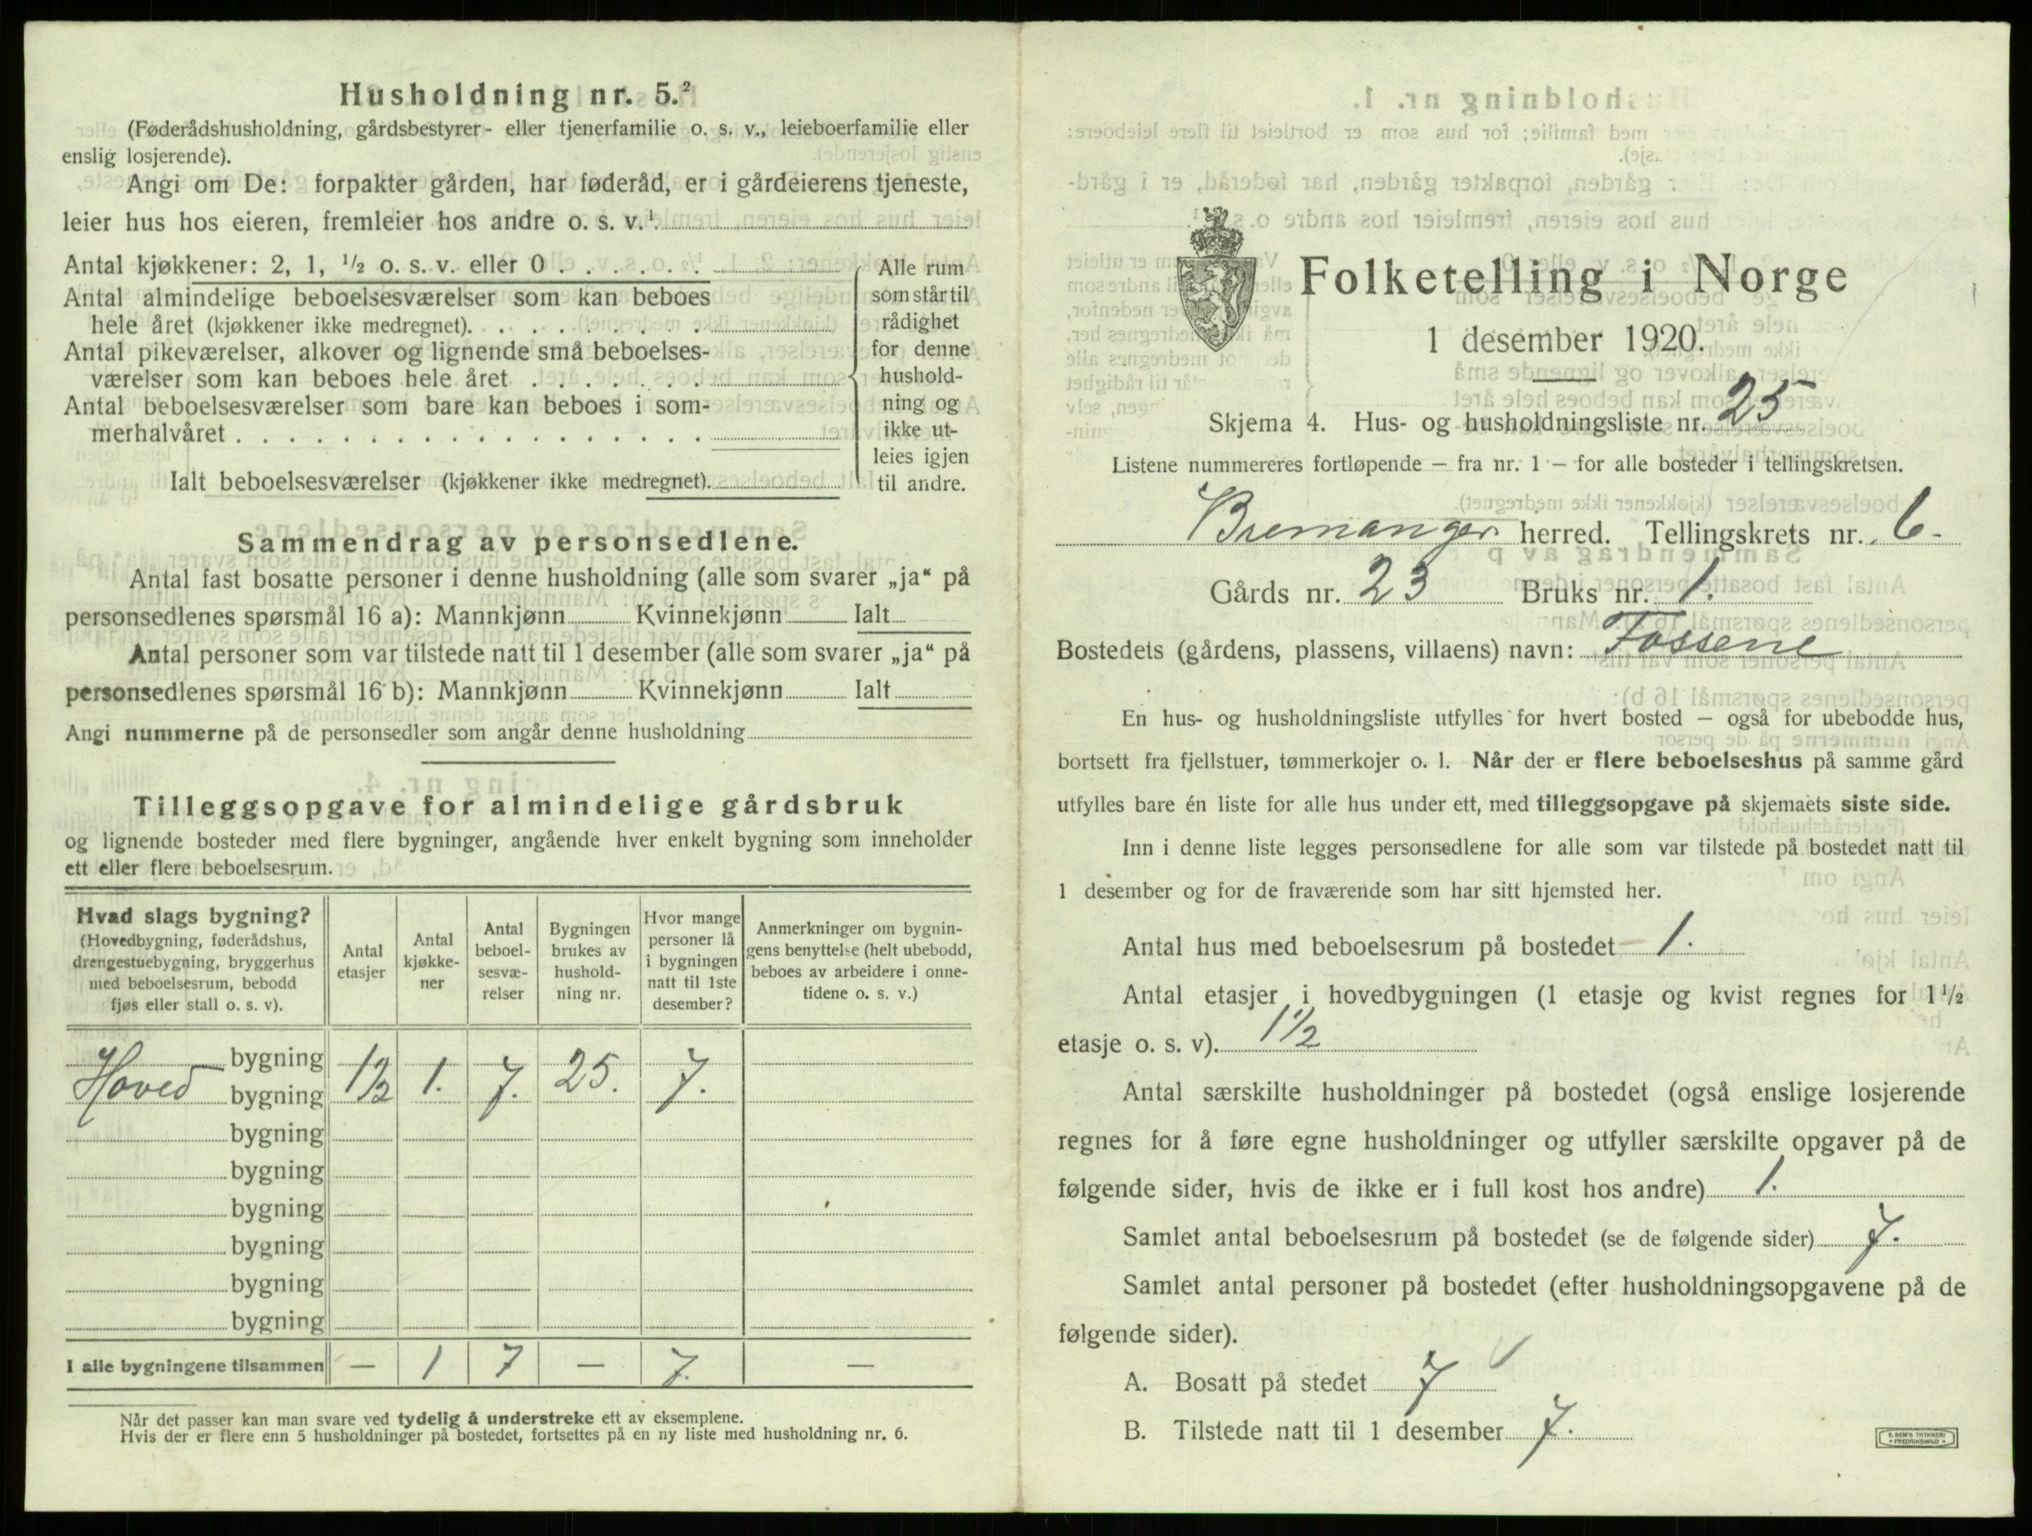 Husholdning nr. 5.²
(Føderådshusholdning, gårdsbestyrer- eller tjenerfamilie o. s. v., leieboerfamilie eller
enslig losjerende).
Angi om De: forpakter gården, har føderåd, er i gårdeierens tjeneste,
leier hus hos eieren, fremleier hos andre o. s. v.¹
Antal kjøkkener: 2, 1, ½ o. s. v. eller 0 . . . . . .
Antal almindelige beboelsesværelser som kan beboes
hele året (kjøkkener ikke medregnet). . . . . . . .
Antal pikeværelser, alkover og lignende små beboelses-
værelser som kan beboes hele året . . . . . . .
Antal beboelsesværelser som bare kan beboes i som-
merhalvåret . . . . . . . . . . . . . . . . . .
Ialt beboelsesværelser (kjøkkener ikke medregnet).
Alle rum
som står til
rådighet
for denne
hushold-
ning og
ikke ut-
leies igjen
til andre.
Sammendrag av personsedlene.
Antal fast bosatte personer i denne husholdning (alle som svarer „ja“ på
personsedlenes spørsmål 16 a): Mannkjønn Kvinnekjønn Ialt
Antal personer som var tilstede natt til 1 desember (alle som svarer „ja“ på
personsedlenes spørsmål 16 b): Mannkjønn Kvinnekjønn Ialt
Angi nummerne på de personsedler som angår denne husholdning
Tilleggsopgave for almindelige gårdsbruk
og lignende bosteder med flere bygninger, angående hver enkelt bygning som inneholder
ett eller flere beboelsesrum.
Hvad slags bygning?
(Hovedbygning, føderådshus,
drengestuebygning, bryggerhus
med beboelsesrum, bebodd
fjøs eller stall o. s. v).
Antal
etasjer
Antal
kjøkke-
ner
Antal
beboel-
sesvæ-
relser
Bygningen
brukes av
hushold-
ning nr.
Hvor mange
personer lå
i bygningen
natt til 1ste
desember?
Anmerkninger om bygnin-
gens benyttelse (helt ubebodd,
beboes av arbeidere i onne-
tidene o. s. v.)
bygning
Hoved bygning 1½ 1. 7. 25. 7.
bygning
bygning
bygning
bygning
bygning
bygning
I alle bygningene tilsammen — 1 7 — 7. —
Når det passer kan man svare ved tydelig å understreke ett av eksemplene.
Hvis der er flere enn 5 husholdninger på bostedet, fortsettes på en ny liste med husholdning nr. 6.
Folketelling i Norge
1 desember 1920.
Skjema 4. Hus- og husholdningsliste nr. 25
Listene nummereres fortløpende – fra nr. 1 – for alle bosteder i tellingskretsen.
Bremanger herred. Tellingskrets nr. 6.
Gårds nr. 23 Bruks nr. 1.
Bostedets (gårdens, plassens, villaens) navn: Fossene
En hus- og husholdningsliste utfylles for hvert bosted – også for ubebodde hus,
bortsett fra fjellstuer, tømmerkojer o. l. Når der er flere beboelseshus på samme gård
utfylles bare én liste for alle hus under ett, med tilleggsopgave på skjemaets siste side.
Inn i denne liste legges personsedlene for alle som var tilstede på bostedet natt til
1 desember og for de fraværende som har sitt hjemsted her.
Antal hus med beboelsesrum på bostedet 1.
Antal etasjer i hovedbygningen (1 etasje og kvist regnes for 1½
etasje o. s. v). 1½
Antal særskilte husholdninger på bostedet (også enslige losjerende
regnes for å føre egne husholdninger og utfyller særskilte opgaver på de
følgende sider, hvis de ikke er i full kost hos andre) 1.
Samlet antal beboelsesrum på bostedet (se de følgende sider) 7.
Samlet antal personer på bostedet (efter husholdningsopgavene på de
følgende sider).
A. Bosatt på stedet 7
B. Tilstede natt til 1 desember 7.